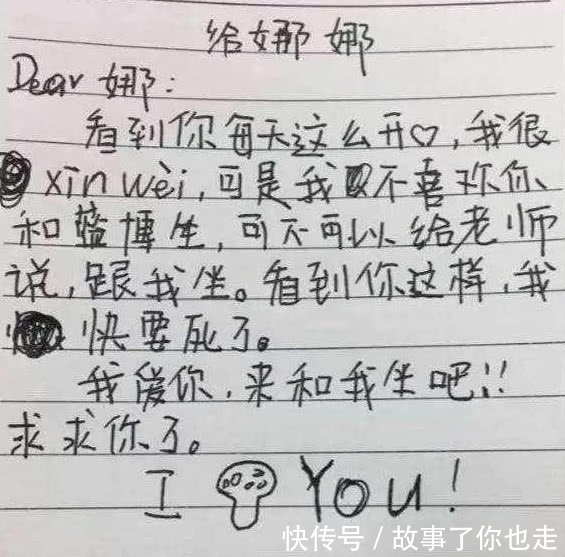 给娜娜
Dear 娜:
看到你每天这么开♡,我很
xīn wèi,可是我不喜欢你
和蓝博生,可不可以给老师
说,跟我坐。看到你这样,我
快要死了。
我爱你,来和我坐吧!!
求求你了。
I YOU!
快传号/故事了你也走